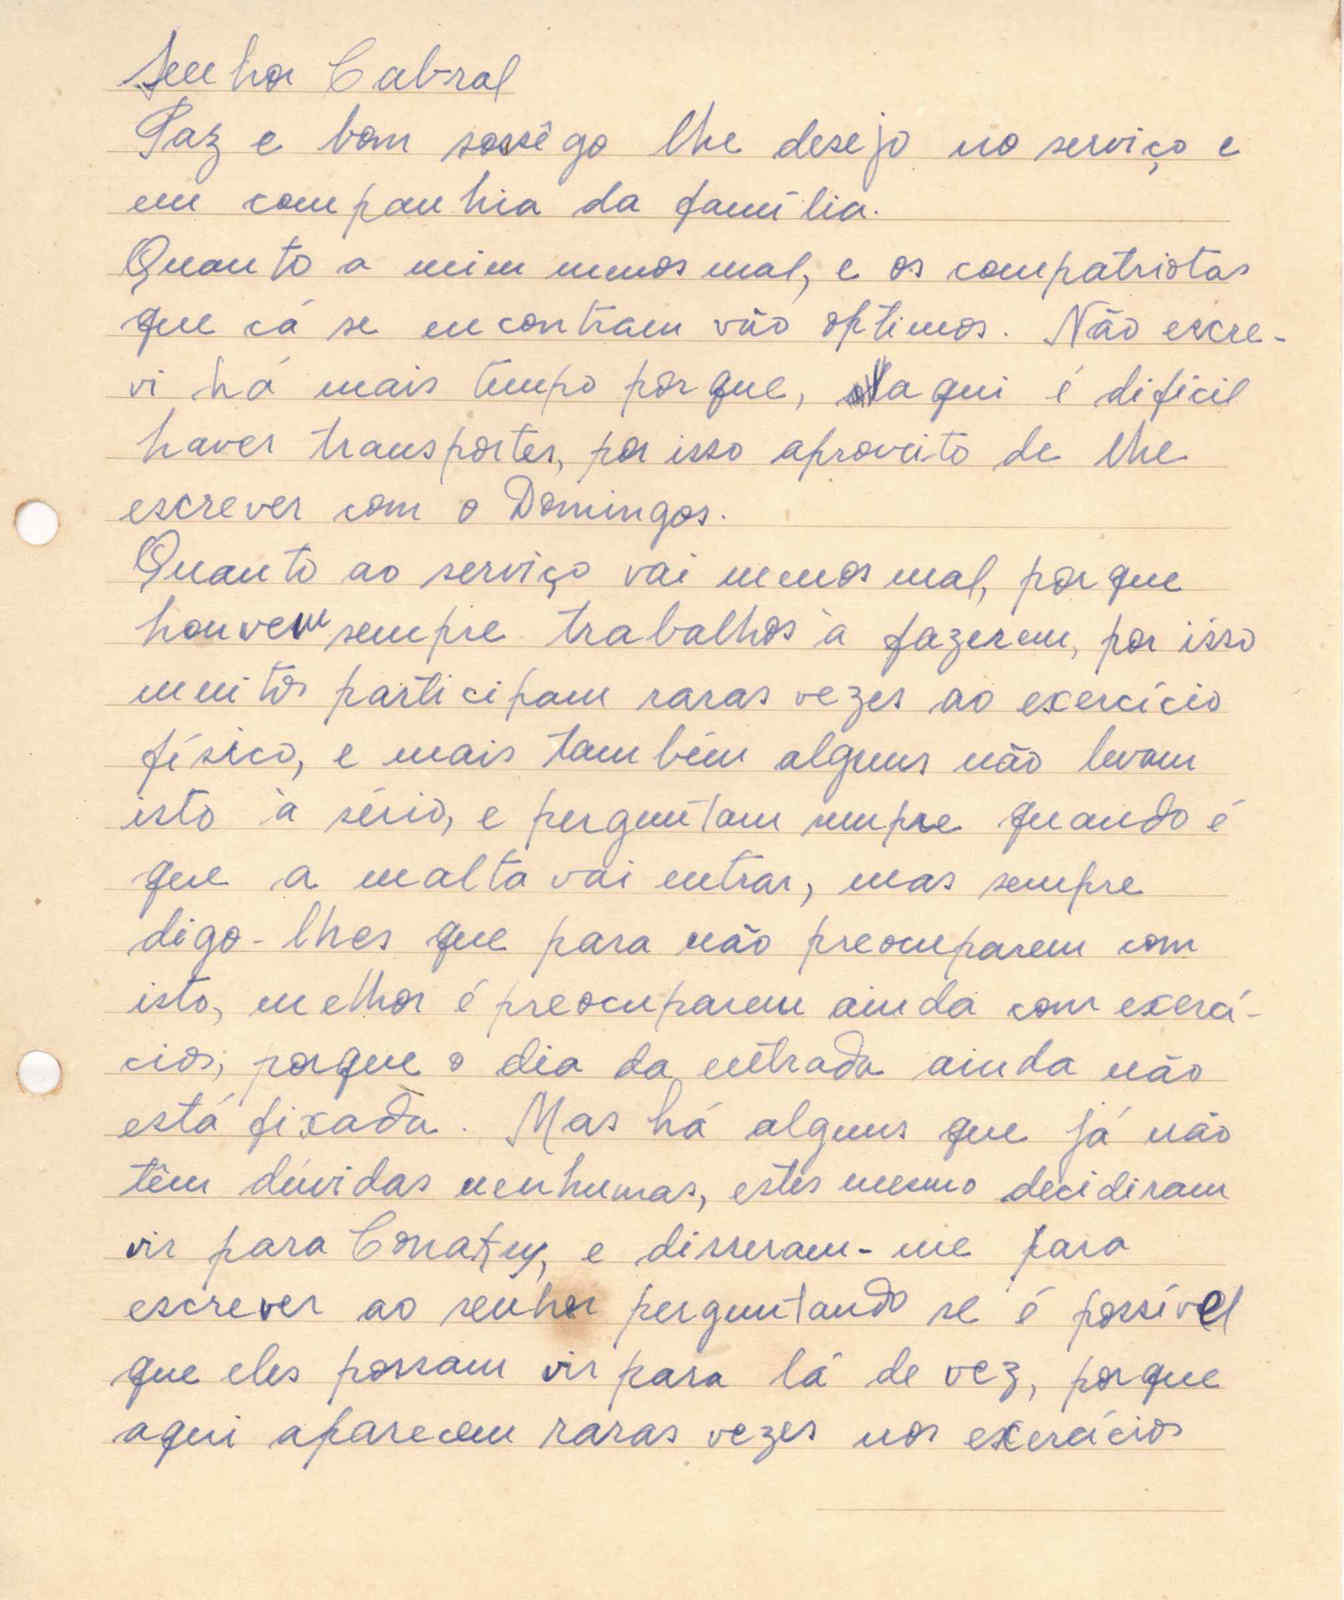 Senhor Cabral
Paz e bom sossêgo lhe desejo no serviço e
em companhia da família.
Quanto a mim menos mal, e os compatriotas
que cá se encontram vão optimos. Não escre-
vi há mais tempo porque, aqui é difícil
haver transportes, por isso aproveito de lhe
escrever com o Domingos.
Quanto ao serviço vai menos mal, porque
houvem sempre trabalhos à fazerem, por isso
muitos participam raras vezes ao exercício
físico, e mais também alguns não levam
isto à sério, e perguntam sempre quando é
que a malta vai entrar, mas sempre
digo-lhes que para não preocuparem com
isto, melhor é preocuparem ainda com exercí-
cios, porque o dia da entrada ainda não
está fixada. Mas há alguns que já não
têm dúvidas nenhumas, estes mesmo decidiram
vir para Conakry, e disseram-me para
escrever ao senhor perguntando se é possível
que eles possam vir para lá de vez, porque
aqui aparecem raras vezes nos exercícios